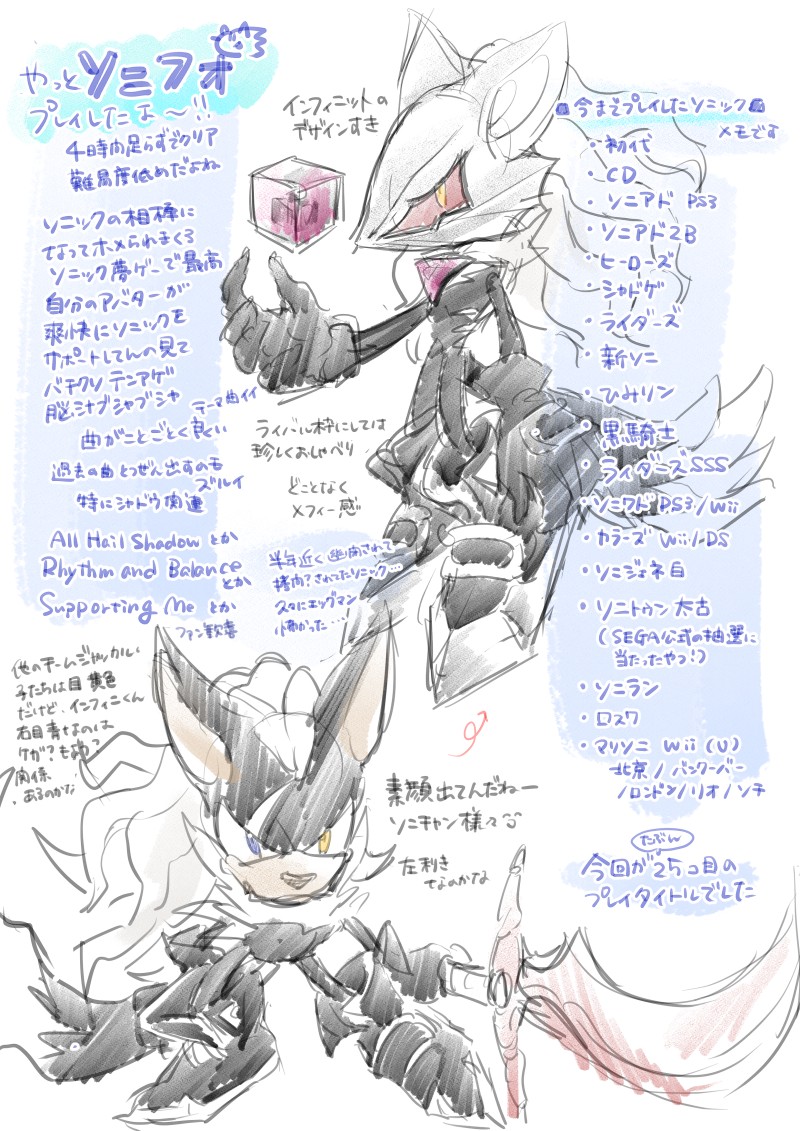 やっとソニフォ
プレイしたよ〜!!
4時間足らずでクリア
難易度低めだよね
ソニックの相棒に
なってホメられまくる
ソニック夢ゲーで最高
自分のアバターが
爽快にソニックを
サポートしてんの見て
バチクソテンアゲ
脳汁ブシャブシャ
テーマ曲イイ
曲がことごとく良い
過去の曲とつぜん出すのも
ズルイ
特にシャドウ関連
All Hail Shadow とか
Rhythm and Balance
とか
Supporting Me とか
ファン歓喜
インフィニットの
デザインすき
ライバル枠にしては
珍しくおしゃべり
どことなく
メフィー感
半年近く幽閉されて
拷問?されてたソニック…
久々にエッグマン
怖かった…
今までプレイしたソニック
メモです
・初代
・CD
・ソニアド PS3
・ソニアド2B
・ヒーローズ
・シャドゲ
・ライダーズ
・新ソニ
・ひみリン
・黒騎士
・ライダーズSSS
・ソニワド PS3/Wii
・カラーズ Wii/DS
・ソニジェネ白
・ソニトゥン太古
(SEGA公式の抽選に
当たったやつ!)
・ソニラン
・ロスワ
・マリソニ Wii(U)
北京/バンクーバー
/ロンドン/リオ/ソチ
たぶん
今回が25コ目の
プレイタイトルでした
他のチームジャッカル
子たちは目黄色
だけど、インフィニくん
右目青なのは
ケガ?もよう?
関係
あるのかな
素顔出てんだねー
ソニチャン様々
左利き
なのかな